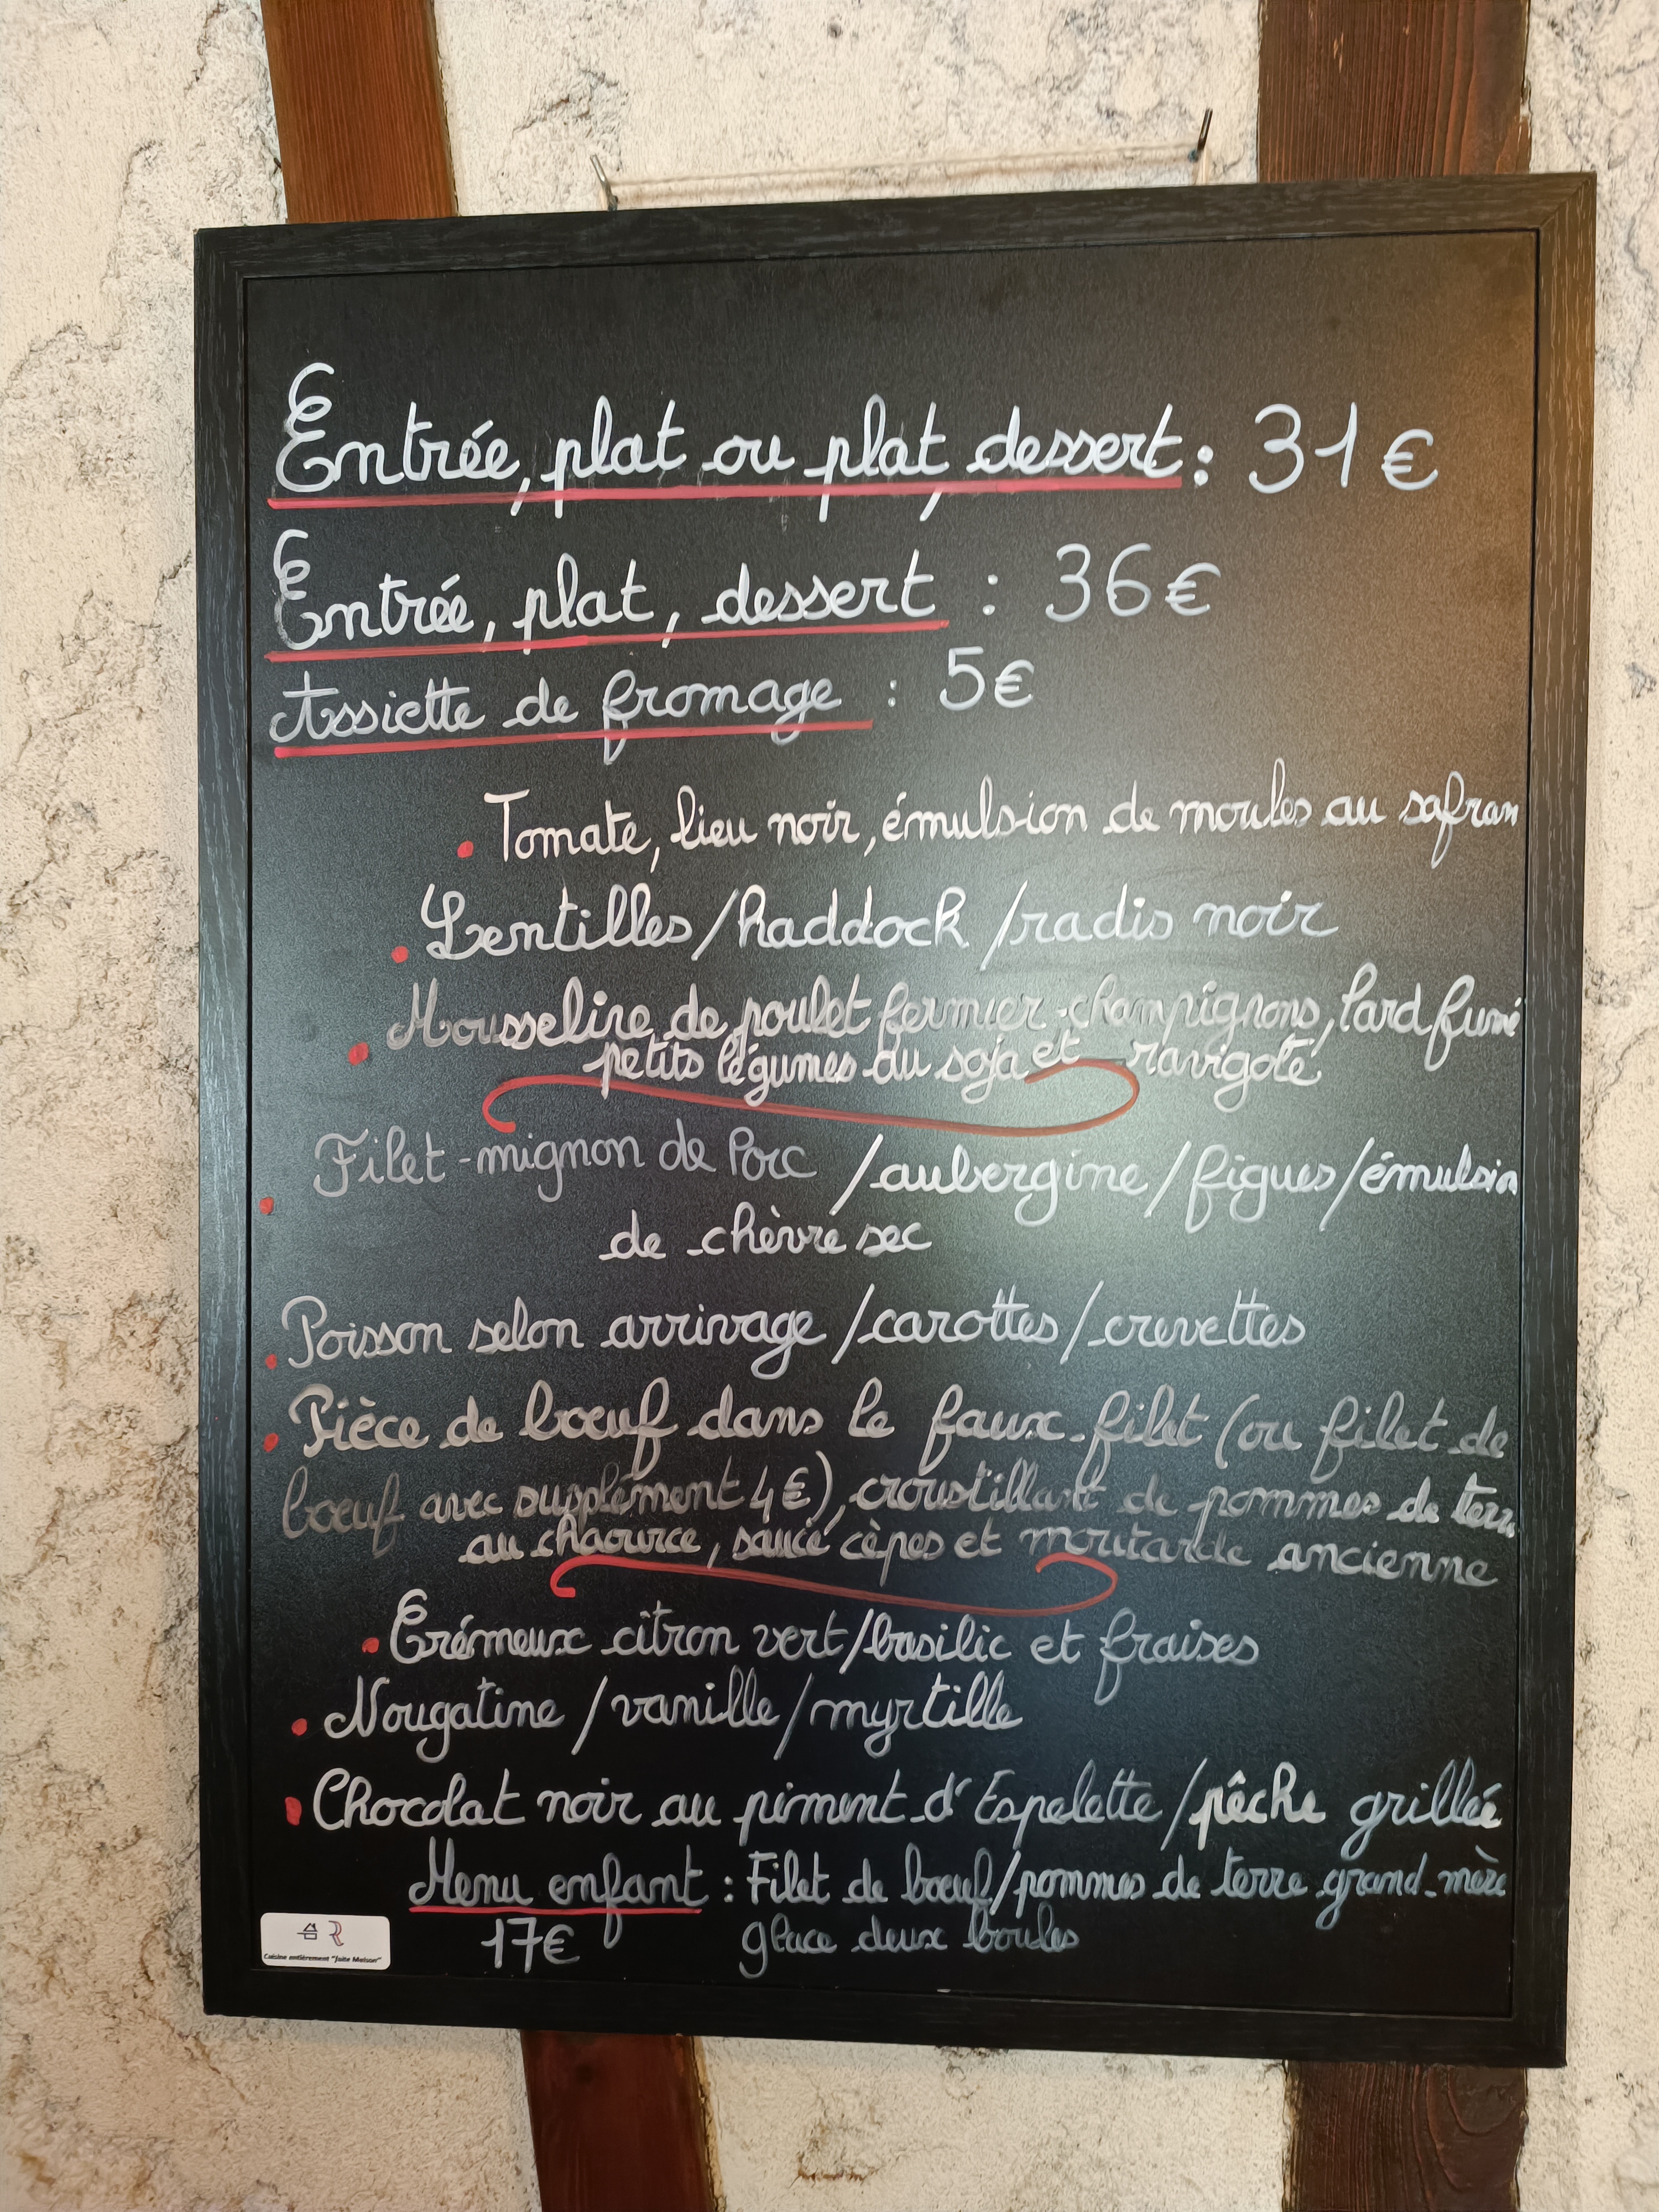 Entrée, plat ou plat, dessert : 31€
Entrée, plat, dessert : 36€
Assiette de fromage : 5€
• Tomate, lieu noir, émulsion de moules au safran
• Lentilles/haddock/radis noir
• Mousseline de poulet fermier-champignons, lard fumé
petits légumes au soja et ravigote
• Filet-mignon de Porc /aubergine/figues/émulsion
de chèvre sec
• Poisson selon arrivage/carottes/crevettes
• Pièce de bœuf dans le faux-filet (ou filet de
bœuf avec supplément 4€), croustillant de pommes de terre
au chaource, sauce cèpes et moutarde ancienne
• Crémeux citron vert/basilic et fraises
• Nougatine/vanille/myrtille
• Chocolat noir au piment d'Espelette/pêche grillée
Menu enfant : Filet de bœuf/pommes de terre grand-mère
17€ glace deux boules
Cuisine entièrement "faite Maison"